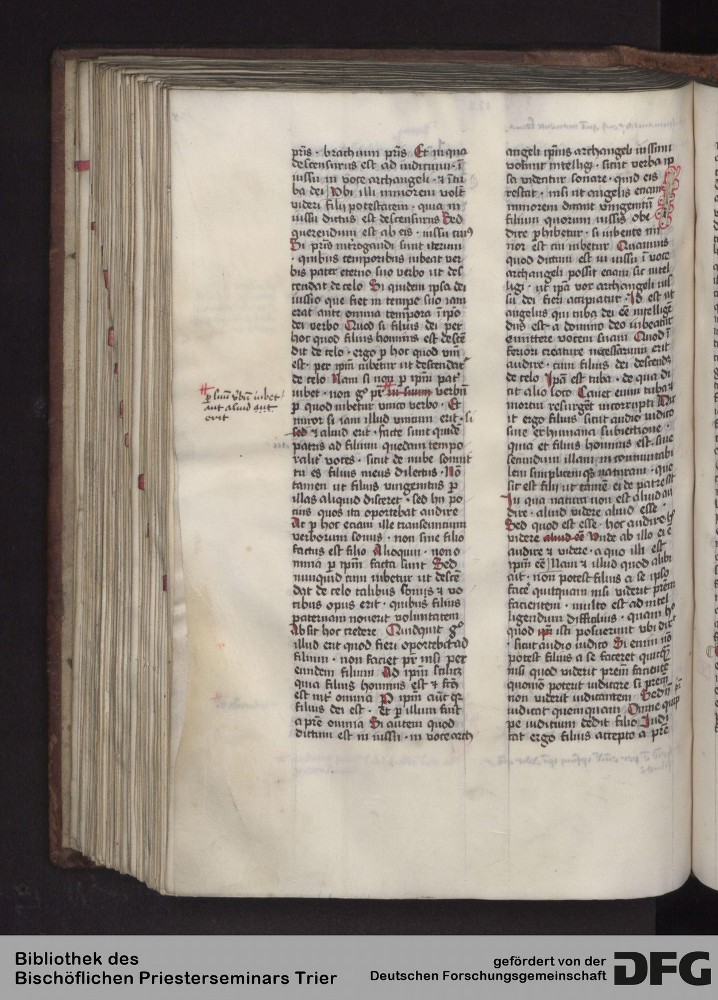 pris · brachium pris Et in qua
descensurus est ad iudiciū · ī
iussu in voce archangeli · ⁊ ī tu
ba dei Vbi illi minorem volūt
videri filij potestatem · quia in
iussu dictus est descensurus Sed
querendum est ab eis · iussu cuiꝰ
Si pris īterogandi sunt iterum
· quibus temporibus iubeat ver
bis pater eterno suo verbo ut des
cendat de celo Si quidem ipsa dei
iussio que fiet in tempe suo iam
erat ante omnia tempora ī ipō
dei verbo Quod si filius dei per
hoc quod filius hominis est descē
dit de celo · ergo ꝑ hoc quod vnū
est · per ipm̄ iubetur ut descendat
de celo Nam si non ꝑ ipm̄ pat̄
iubet · non gͦ pr̄ in suum verbū
ꝑ quod iubetur vnico verbo · Et
miror si iam illud vnicum erit · si
sed ⁊ aliud erit · facte sunt quidē
patris ad filium quedam tempo
ralit̄ voces · sicut de nube sonuit
tu es filius meus dilectus · Nō
tamen ut filius vnigenitus ꝑ
illas aliquid disceret · sed hij po
tius quos ita oportebat audire
At ꝑ hoc eciam ille transeuntium
verborum sonus · non sine filio
factus est filio Alioquin · non o
mnia ꝑ ipm̄ facta sunt Sed
nunquid cum iubetur ut descē
dat de celo talibus sonis ⁊ vo
cibus opus erit · quibus filius
paternam nouerit voluntatem
Absit hoc credere Quidquit gͦ
illud erit quod fieri oportebat ad
filium · non faciet pr̄ nisi per
eundem filium Ad ipm̄ scilicz
quia filius hominis est ⁊ fc̄us
est int̄ omnia P ipm̄ aūt qꝛ
filius dei est · Et ꝑ illum sunt
a pre omnia Si autem quod
dictum est in iussu · in voce arch
⌗ ꝑ suū v̄bū iubet
aut aliud aut
erit
angeli ipsius archangeli iussum
voluerint intelligi · sicut verba ip
sa videntur sonare · quid eis
restat · nisi ut angelis eciam
minorem dicant vnigenitū
filium quorum iussis obe
dire perhibetur · si iubente mi
nor est cui iubetur Quamuis
quod dictum est in iussu ī voce
archangeli possit eciam sic intel
ligi · ut ipa vox archangeli ius
su dei fieri accipiatur · Id est ut
angelus qui tuba dei eē intelligit̄
dns̄ est · a domino deo iubeatur
emittere vocem suam Quod ī
feriori creature necessarium erit
audire · cum filius dei descendᷤ
de celo Ipa est tuba · de qua di
cit alio loco Canet enim tuba ⁊
mortui resurget̄ incorrupti Au
it ergo filius sicut audio iudico
siue ex humana subiectione ·
quia et filius hominis est · siue
secundum illam incommutabi
lem simplicemqꝫ naturam · que
sic est filij ut tamē ei de patre sit
In qua natura non est aliud au
dire · aliud videre aliud esse ·
Sed quod est esse · hoc audire hͦ
videre aliud eē Vnde ab illo ei ē
audire ⁊ videre · a quo illi est
ipm̄ eē Nam ⁊ illud quod alibi
ait · non potest filius a se ipso
facē quitquam nisi viderit prem̄
facientem · multo est ad intel
ligendum difficilius · quam hͦ
quod ipi isti posuerunt vbi dic̄
· sicut audio iudico Si enim nō
potest filius a se faceret quicqꝫ
nisi quod viderit prem̄ faciētē
quomō poterit iudicare si prem̄
non viderit iudicantem Sed n̄ pr̄
iudicat quemquam Omne quip
pe iudicium dedit filio Iudi
cat ergo filius accepto a pre
Bibliothek des
Bischöflichen Priesterseminars Trier
gefördert von der
Deutschen Forschungsgemeinschaft
DFG